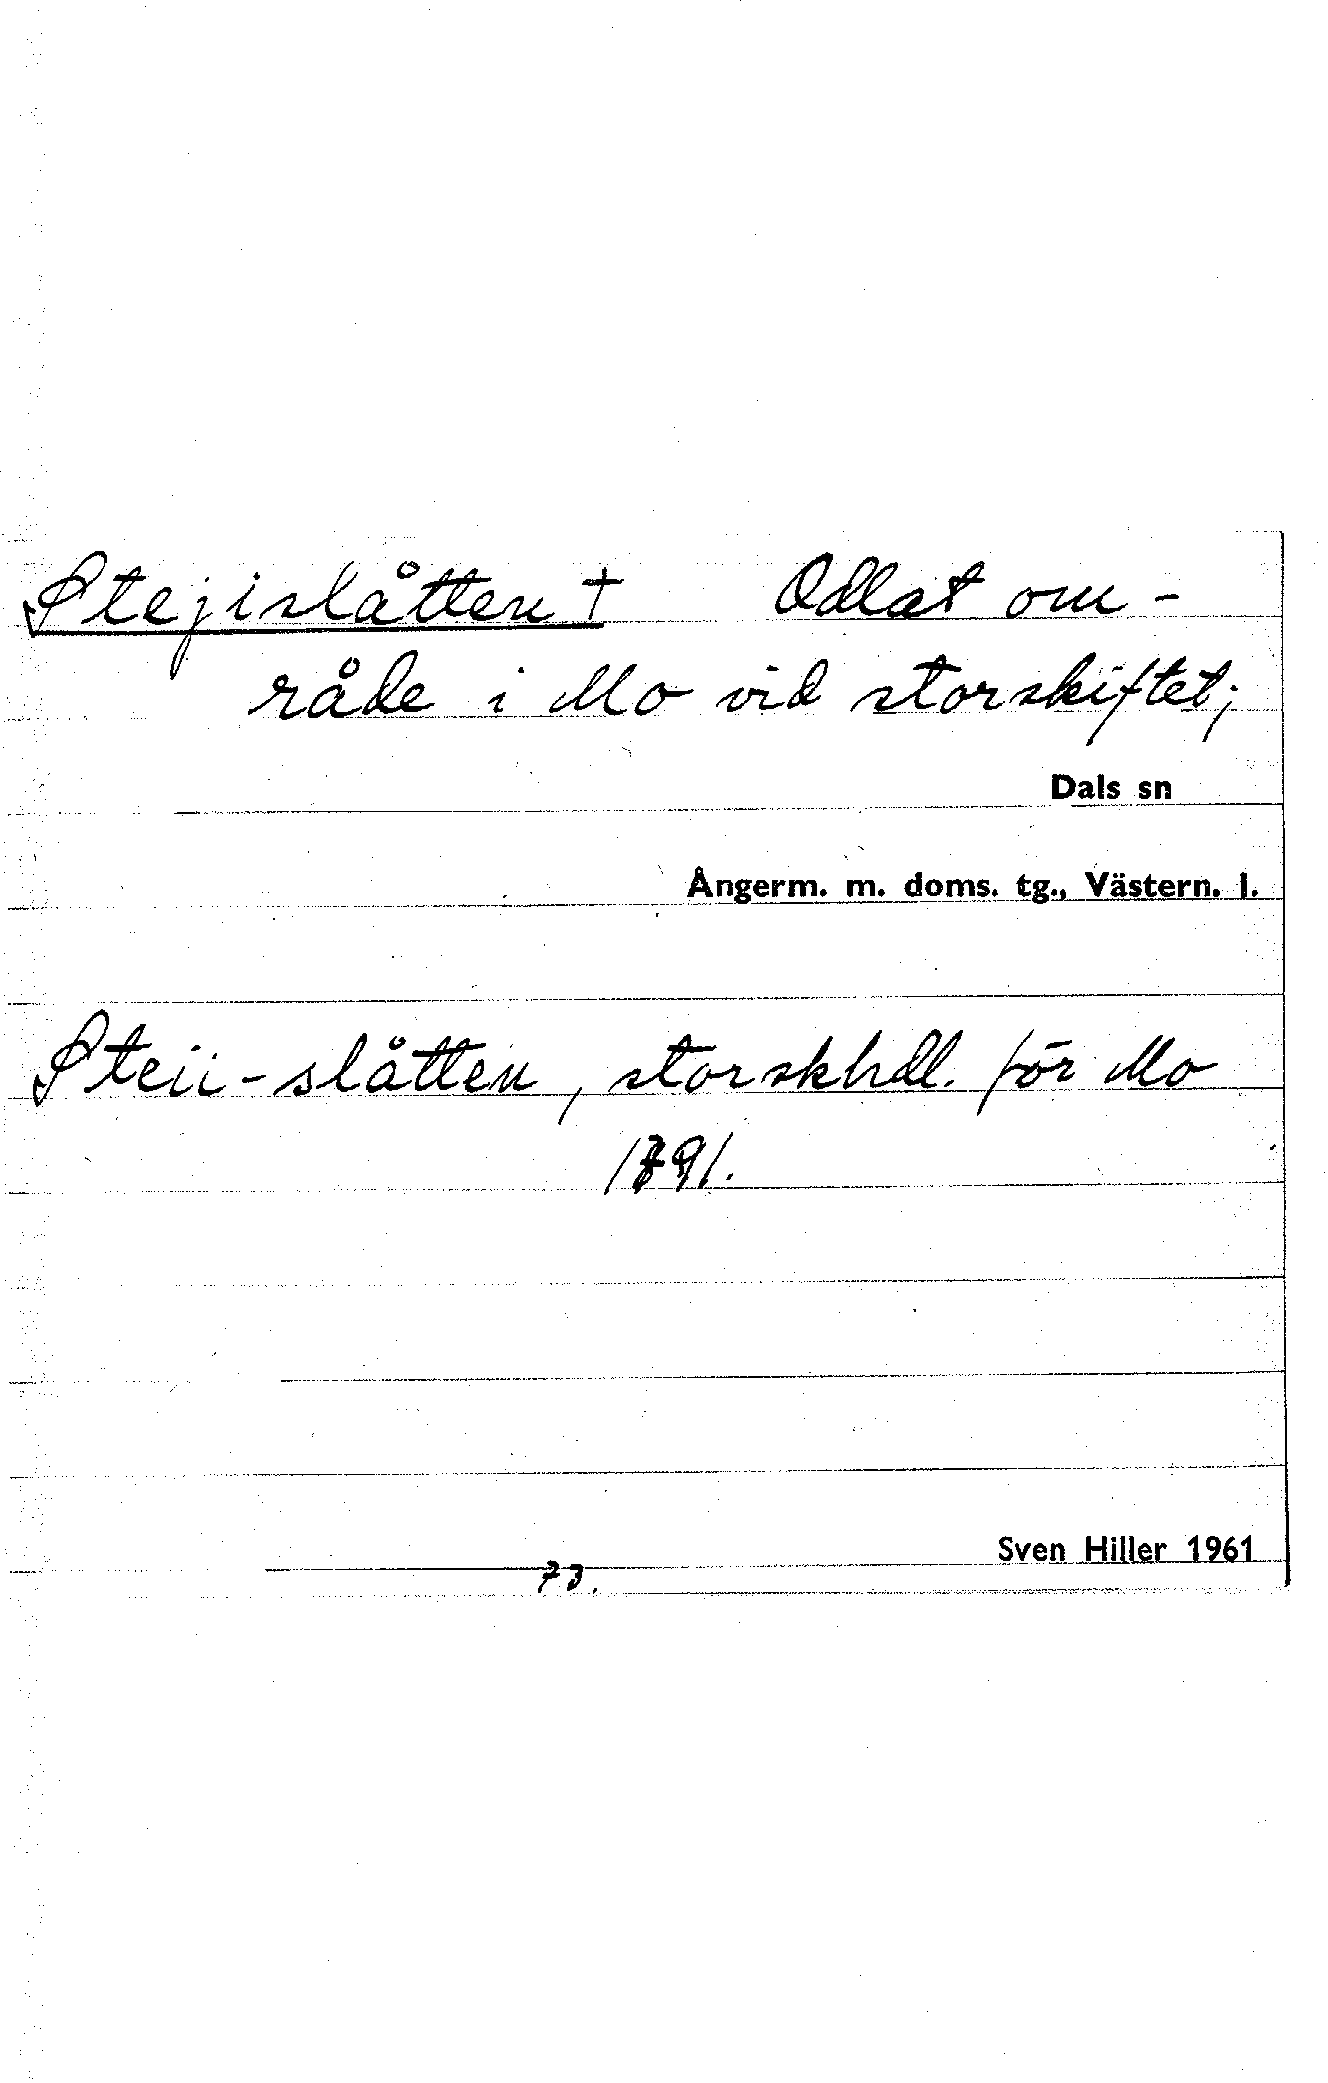 Stejislåtten † Odlat om-
råde i Mo vid storskiftet;
Dals sn
Ångerm. m. doms. tg., Västern. l.
Steii-slåtten, storskhdl. för Mo
1791.
Sven Hiller 1961
73.